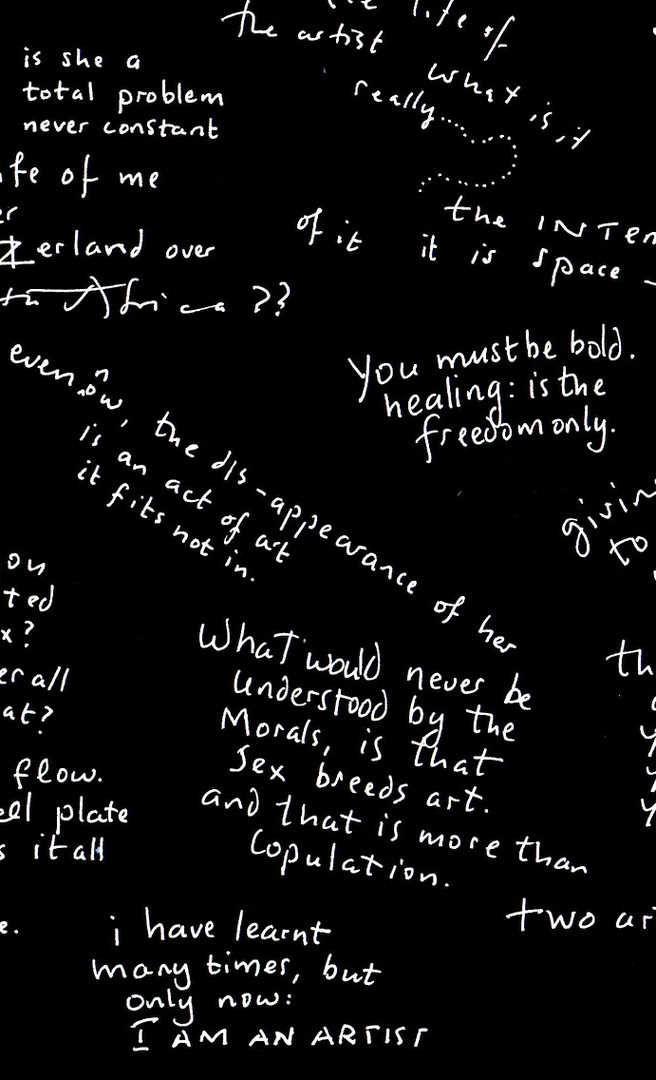 life of
the artist
really.... what is it
is she a
total problem
never constant
fe of me
er
zerland over
th Africa ??
of it it is space
the INTER
You must be bold.
healing: is the
freedom only.
even now, the dis-appearance of her
is an act of art
it fits not in.
giving
to
on
ted
x?
er all
at?
What would never be
understood by the
Morals, is that
Sex breeds art.
and that is more than
Copulation.
th
flow.
eel plate
s it all
e.
i have learnt
many times, but
only now:
I AM AN ARTIST
two ar